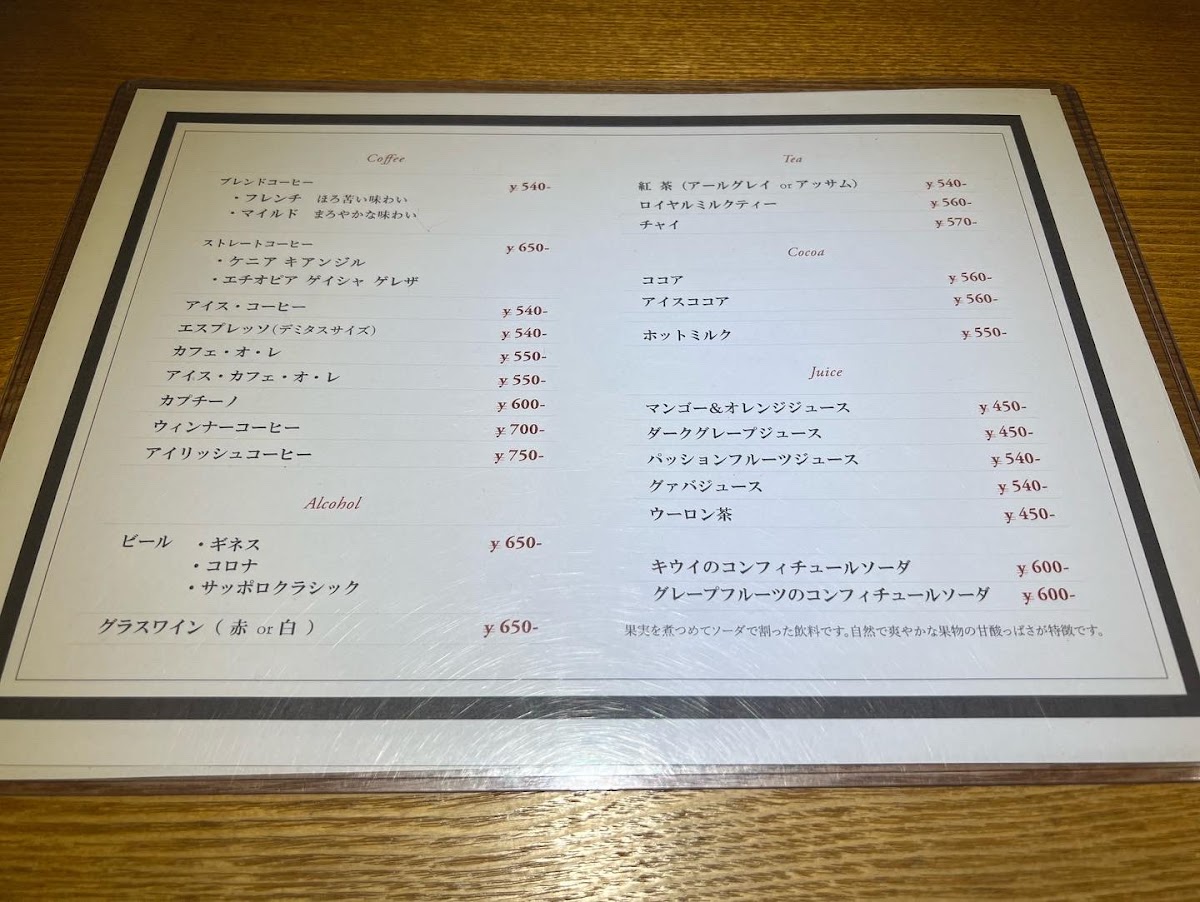 Coffee
ブレンドコーヒー ¥540-
・フレンチ ほろ苦い味わい
・マイルド まろやかな味わい
ストレートコーヒー ¥650-
・ケニア キアンジル
・エチオピア ゲイシャ ゲレザ
アイス・コーヒー ¥540-
エスプレッソ(デミタスサイズ) ¥540-
カフェ・オ・レ ¥550-
アイス・カフェ・オ・レ ¥550-
カプチーノ ¥600-
ウィンナーコーヒー ¥700-
アイリッシュコーヒー ¥750-
Alcohol
ビール ・ギネス ¥650-
・コロナ
・サッポロクラシック
グラスワイン ( 赤 or 白 ) ¥650-
Tea
紅 茶 (アールグレイ or アッサム) ¥540-
ロイヤルミルクティー ¥560-
チャイ ¥570-
Cocoa
ココア ¥560-
アイスココア ¥560-
ホットミルク ¥550-
Juice
マンゴー&オレンジジュース ¥450-
ダークグレープジュース ¥450-
パッションフルーツジュース ¥540-
グァバジュース ¥540-
ウーロン茶 ¥450-
キウイのコンフィチュールソーダ ¥600-
グレープフルーツのコンフィチュールソーダ ¥600-
果実を煮つめてソーダで割った飲料です。自然で爽やかな果物の甘酸っぱさが特徴です。